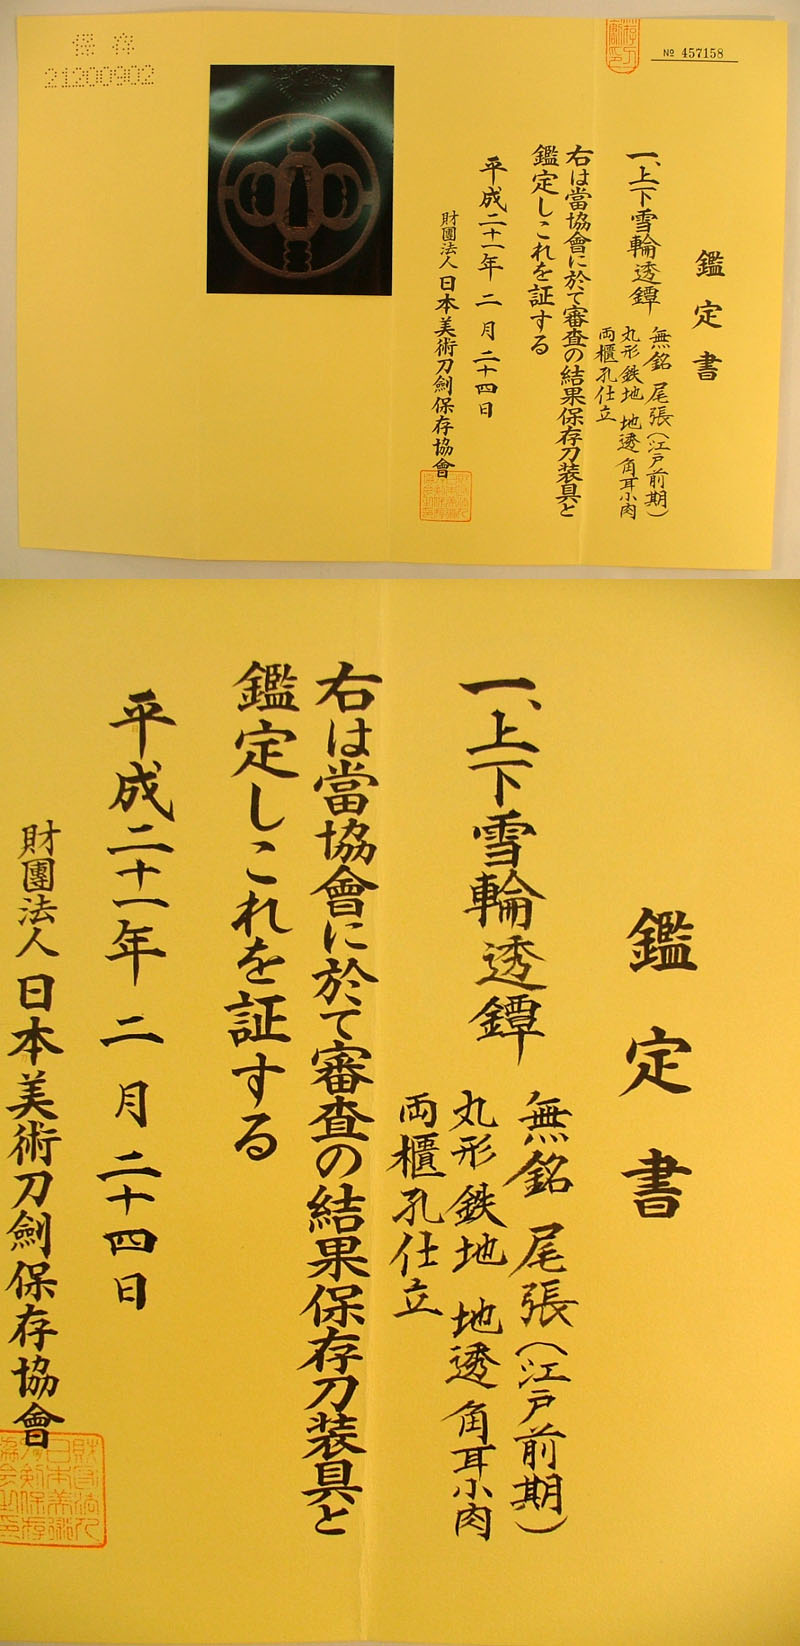 保存
21200902
№ 457158
鑑定書
一、上下雪輪透鐔
無銘 尾張(江戸前期)
丸形鉄地 地透 角耳小肉
両櫃孔仕立
右は當協會に於て審査の結果保存刀装具と
鑑定しこれを証する
平成二十一年 二月 二十四日
財團法人 日本美術刀劍保存協會
鑑定書
一、上下雪輪透鐔
無銘 尾張(江戸前期)
丸形鉄地 地透 角耳小肉
両櫃孔仕立
右は當協會に於て審査の結果保存刀装具と
鑑定しこれを証する
平成二十一年 二月 二十四日
財團法人 日本美術刀劍保存協會